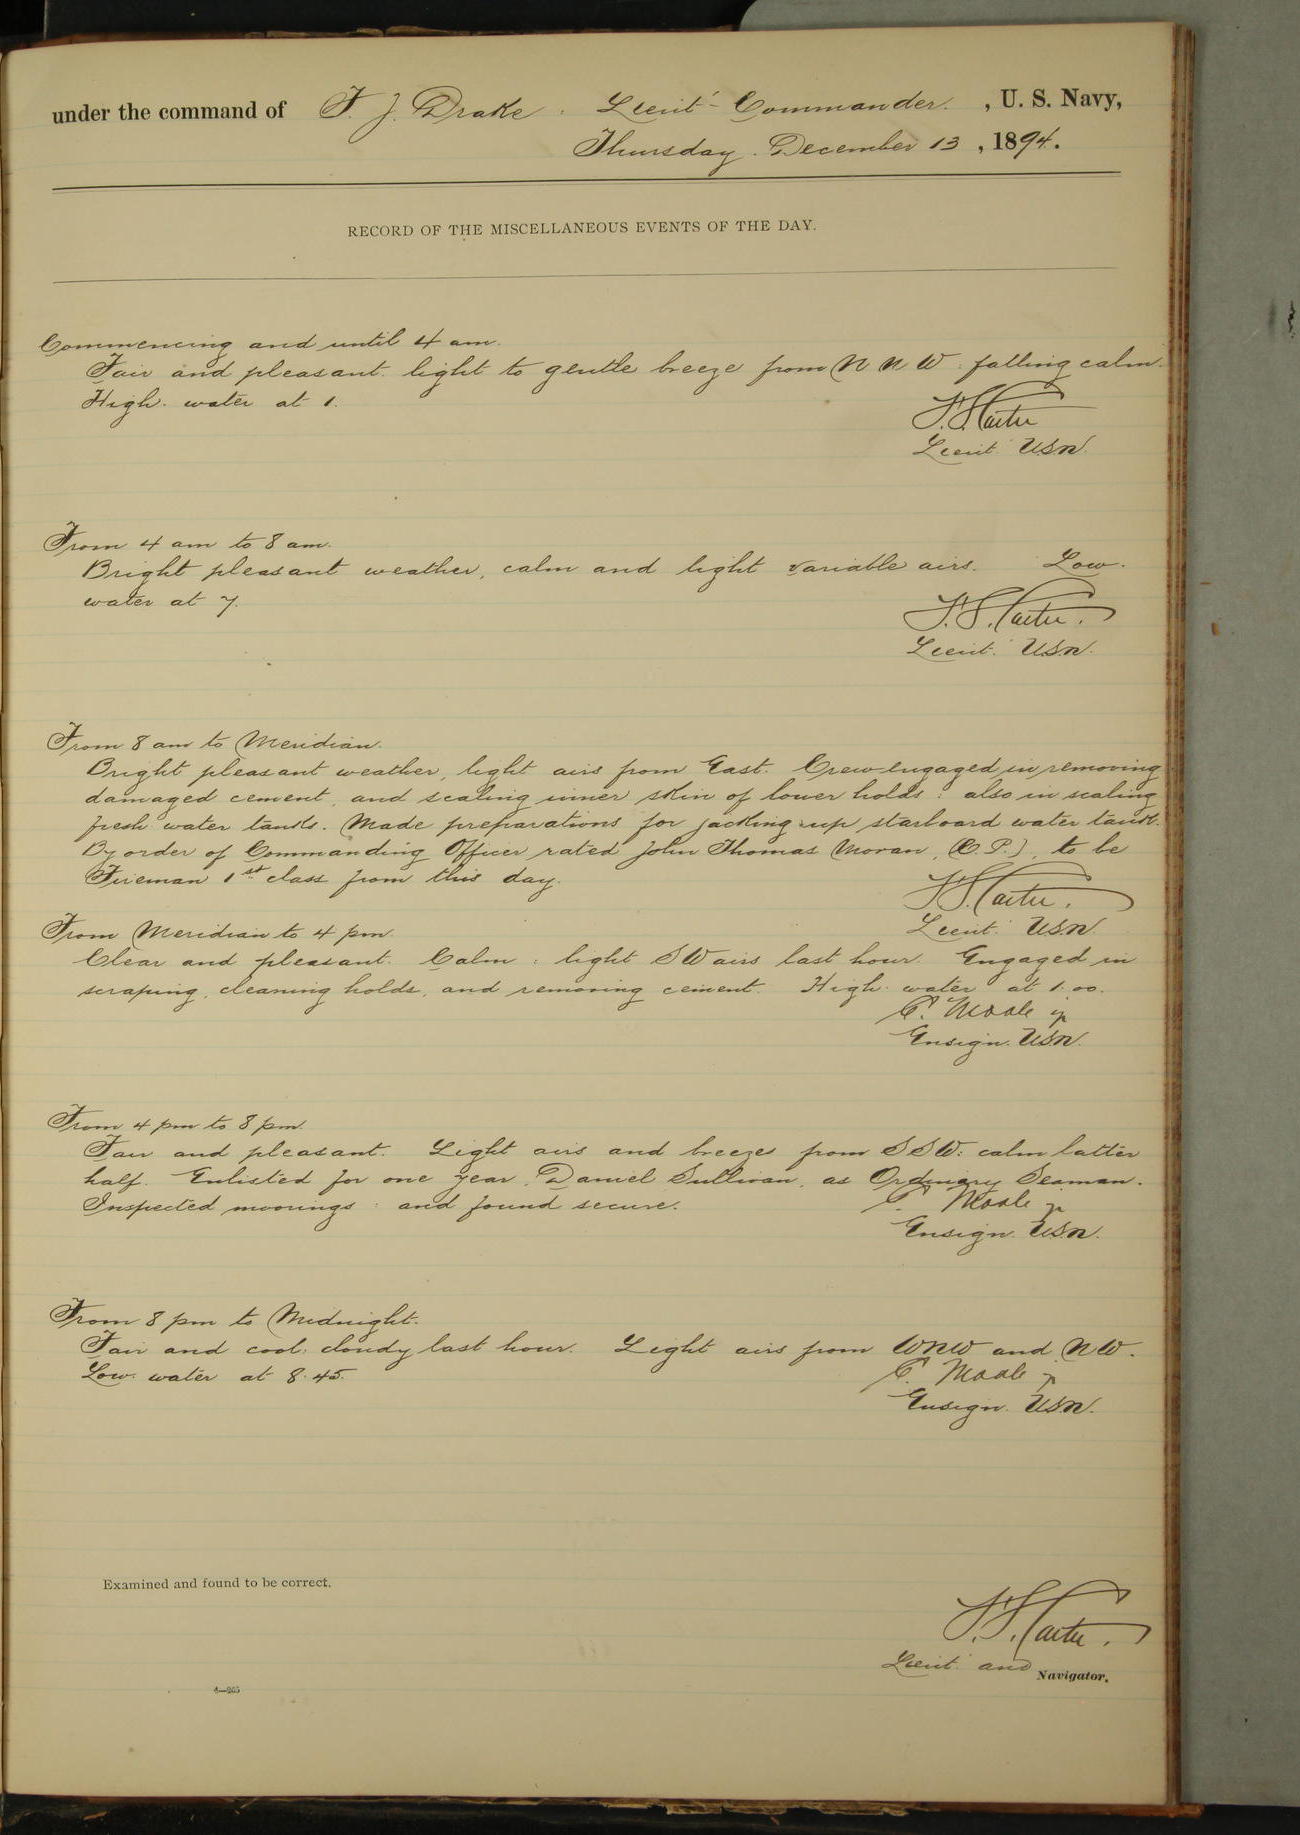 under the command of F. J. Drake. Lieut-Commander. , U. S. Navy,
Thursday. December 13 , 1894.
RECORD OF THE MISCELLANEOUS EVENTS OF THE DAY.
Commencing and until 4 am.
Fair and pleasant. light to gentle breeze from N N W: falling calm.
High. water at 1.
Carter
Lieut. U.S.N.
From 4 am to 8 am.
Bright pleasant weather, calm and light variable airs. Low.
water at 7.
Carter.
Lieut. U.S.N.
From 8 am to Meridian.
Bright pleasant weather, light airs from East. Crew engaged in removing
damaged cement, and scaling inner skin of lower holds: also in scaling
fresh water tanks. Made preparations for jacking up starboard water tank.
By order of Commanding Officer rated John Thomas Moran, (C.P.), to be
Fireman 1st class from this day.
Carter.
Lieut. U.S.N.
From Meridian to 4 pm.
Clear and pleasant. Calm: light SW airs last hour. Engaged in
scraping, cleaning holds, and removing cement. High. water at 1.00.
C. Moale jr
Ensign. U.S.N.
From 4 pm to 8 pm.
Fair and pleasant. Light airs and breezes from SSW: calm latter
half. Enlisted for one year, Daniel Sullivan, as Ordinary Seaman.
Inspected moorings: and found secure.
C. Moale jr
Ensign. U.S.N.
From 8 pm to Midnight.
Fair and cool: cloudy last hour. Light airs from WNW and NW.
Low. water at 8.45.
C. Moale jr
Ensign. U.S.N.
Examined and found to be correct.
Carter.
Lieut. and Navigator.
4—265